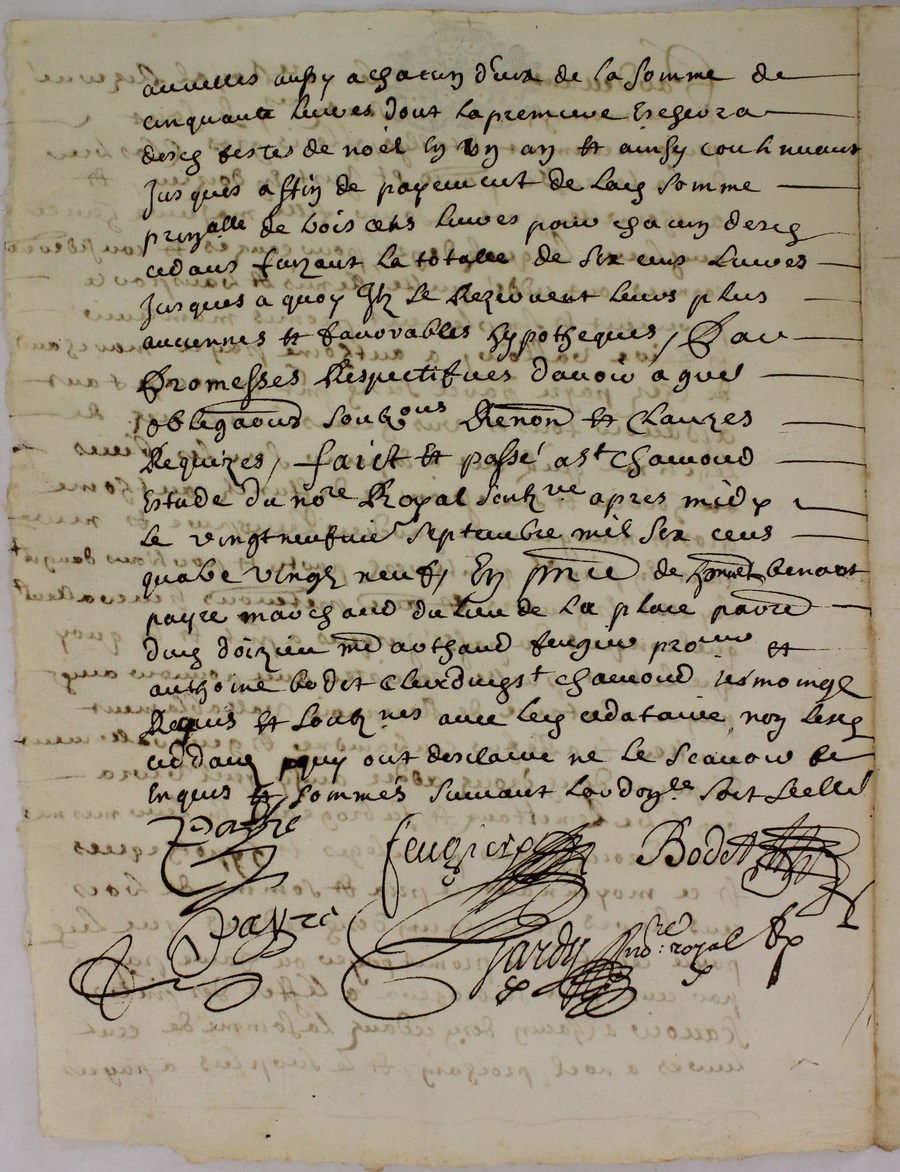 annuelles aussy a chacun d'eux de la somme de
cinquante livres dont la premiere escherra
desd festes de noel en un an et ainsy continuant
jusques a ffin de payement de lad somme
prinalle de trois cens livres pour chacun desd
cedans faizant la totalle de six cens livres
jusques a quoy ilz se rezervent leurs plus
anciennes et favorables hypotheques, Par
Promesses Respectifves d'avoir a gre
obligaons soubzons Renon et clauzes
Requizes, faict et passé a st chamond
Estude du nore Royal soubzne apres midy
le vingt neufvie septembre mil six cens
quatre vingtz neuf, En pnce de honnet benoist
payre marchand du lieu de la place parre
dud doizieu me arthaud feugier procur et
anthoine bodet clerc dud st chamond tesmoingz
Requis et soubznes avec led cedataire non lesd
ceddans pour quoy ont desclaire ne le scavoir de
Enquis et sommés suivant l'ordonce soit scellé
Payre
feugier Bodet
Payre
Jardy nore royal